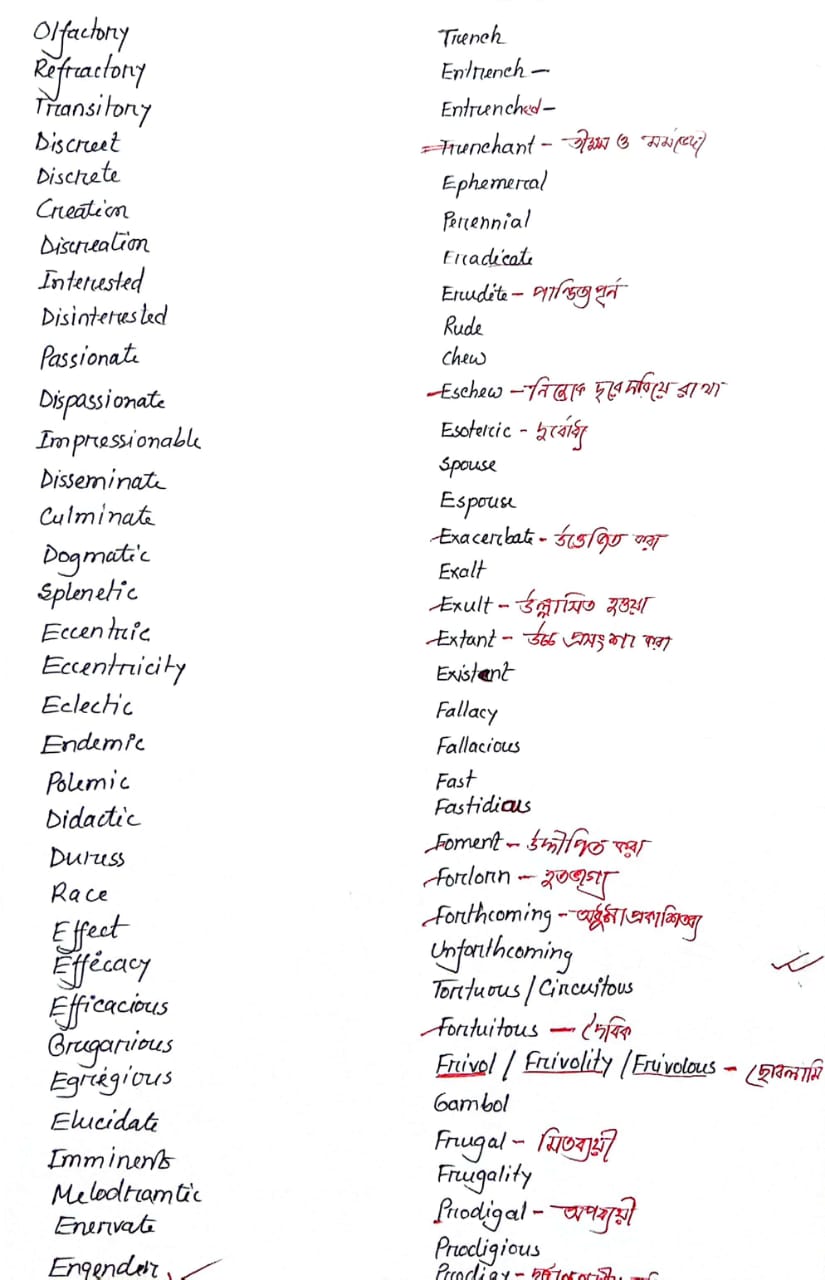 Olfactory
Refractory
Transitory
Discreet
Discrete
Creation
Discreation
Interested
Disinterested
Passionate
Dispassionate
Impressionable
Disseminate
Culminate
Dogmatic
Splenetic
Eccentric
Eccentricity
Eclectic
Endemic
Polemic
Didactic
Duress
Race
Effect
Efficacy
Efficacious
Grugarious
Egregious
Elucidate
Imminent
Melodramtic
Enervate
Engender
Trench
Entrench –
Entrenched –
Trenchant – তীক্ষ্ম ও মর্মভেদী
Ephemeral
Perennial
Erradicate
Erudite – পান্ডিত্যপূর্ন
Rude
Chew
Eschew – নিজেকে দূরে সরিয়ে রাখা
Esoteric – দুর্বোধ্য
Spouse
Espouse
Exacerbate – উত্তেজিত করা
Exalt
Exult – উল্লাসিত হওয়া
Extant – উচ্চ প্রসংশা করা
Existent
Fallacy
Fallacious
Fast
Fastidious
Foment – উদ্দীপিত করা
Forlorn – হতভাগ্য
Forthcoming – প্রকাশিতব্য
Unforthcoming
Tortuous / Circuitous
Fortuitous — দৈবিক
Frivol / Frivolity / Frivolous – ছেবলামি
Gambol
Frugal – মিতব্যয়ী
Frugality
Prodigal – অপব্যয়ী
Prodigious